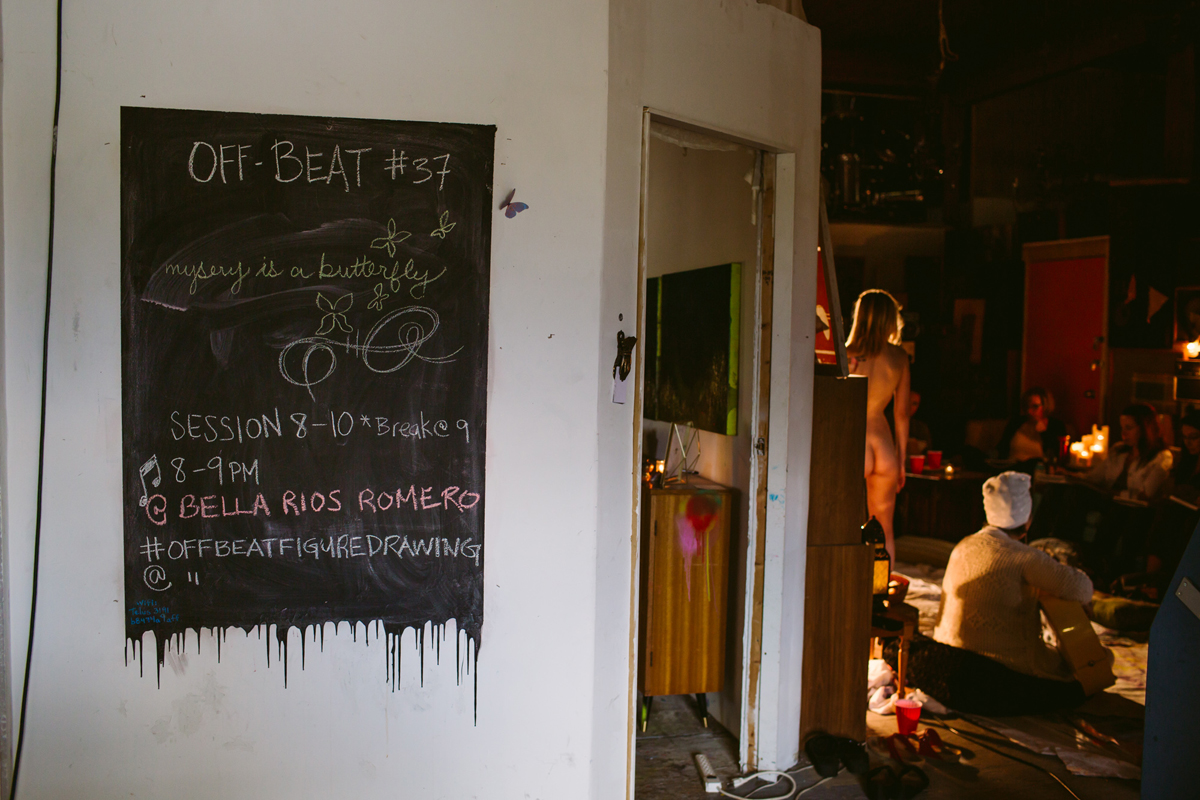 OFF-BEAT #37
mysery is a butterfly
SESSION 8-10 *Break@9
8-9PM
@BELLA RIOS ROMERO
#OFFBEATFIGUREDRAWING
@ "